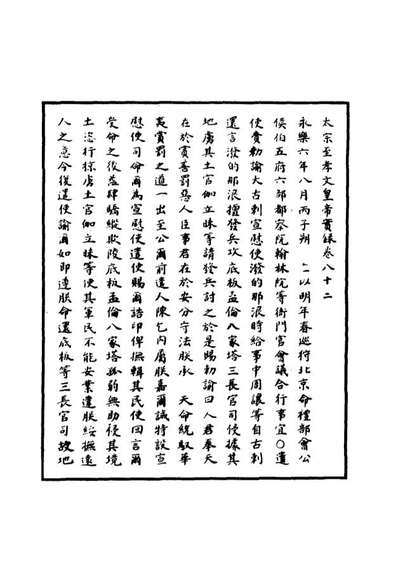 太宗至孝文皇帝實錄卷八十二
永樂六年八月丙子朔　上以明年春巡狩北京命禮部會公
侯伯五府六部都察院翰林院等衙門官會議合行事宜○遣
使賫勅諭大古剌宣慰使潑的那浪時給事中周讓等自古剌
還言潑的那浪擅發兵攻底板孟倫八家塔三長官司侵據其
地虜其土官伽立昧等請發兵討之於是賜勅諭曰人君奉天
在於賞善罰惡人臣事君在於安分守法朕承　天命統馭華
夷賞罰之道一出至公爾前遣人陳乞內屬朕嘉爾誠特設宣
慰使司命爾為宣慰使遣使賜爾誥印俾撫輯其民使回言爾
受命之後志肆驕縱欺陵底板孟倫八家塔孤弱無助侵其境
土恣行掠虜土官伽立昧等使其軍民不能安業違朕綏撫遠
人之意今復遣使諭爾如即遵朕命還底板等三長官司故地